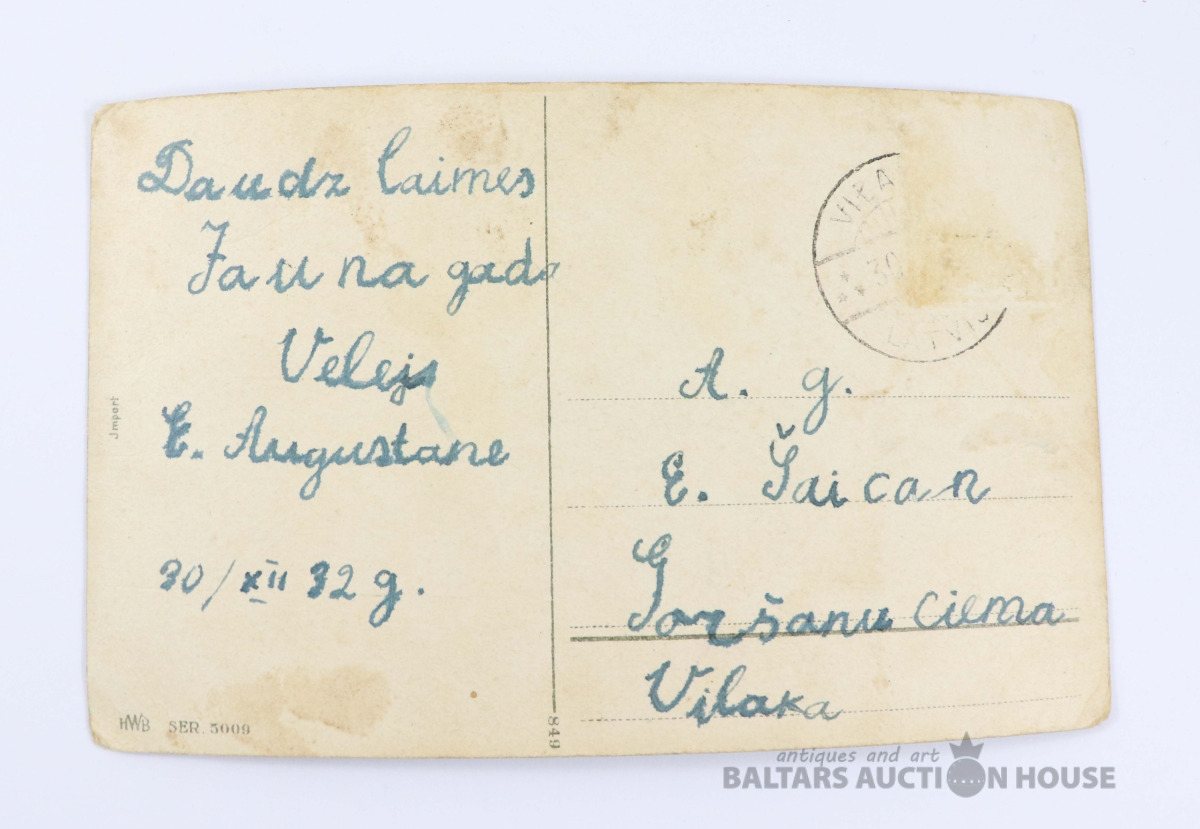 Daudz laimes
Jauna gada
Velejs
E. Augustane
30/XII 32 g.
Jmport
HWB SER. 5009
849
VIĻA
30
LATVIJ
A. g.
E. Šaican
Goršanu ciema
Viļaka
antiques and art
BALTARS AUCTION HOUSE